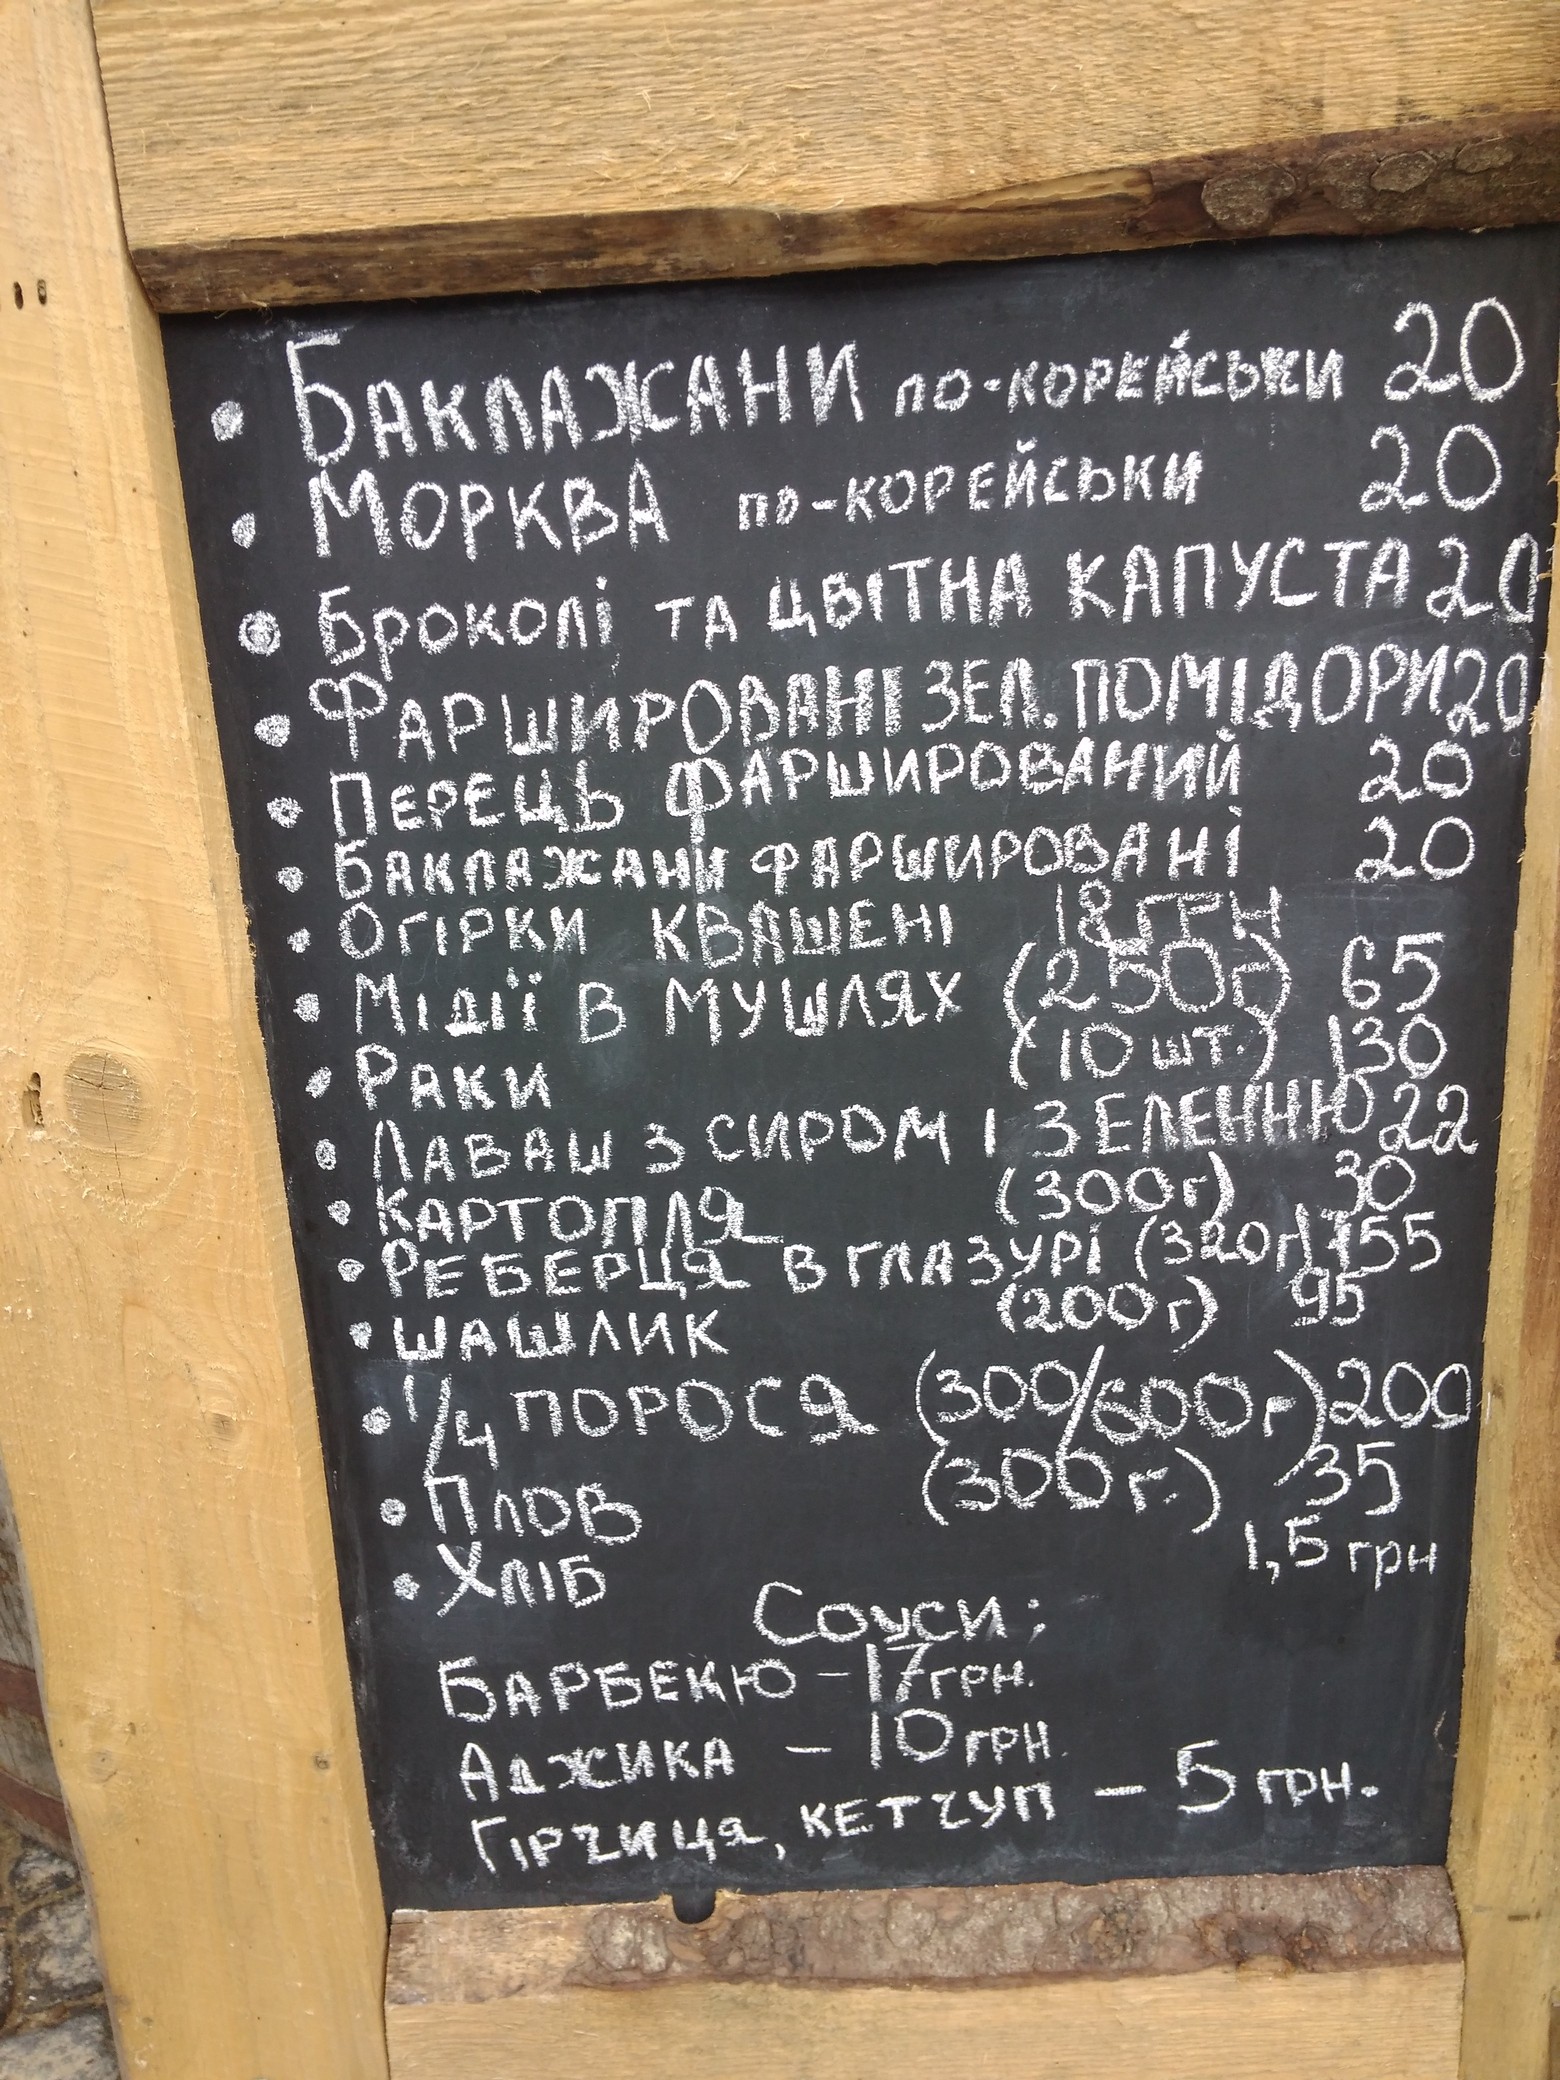 • Баклажани по-корейськи 20
• Морква по-корейськи 20
• Броколі та цвітна капуста 20
• Фаршировані зел. помідори 20
• Перець фарширований 20
• Баклажани фаршировані 20
• Огірки квашені 18 грн
• Мідії в мушлях (250г) 65
• Раки (10 шт.) 130
• Лаваш з сиром і зеленню 22
• Картопля (300г) 30
• Реберця в глазурі (320г) 155
• Шашлик (200г) 95
• 1/4 порося (300/600г) 200
• Плов (300г.) 35
• Хліб 1,5 грн
Соуси:
Барбекю – 17 грн.
Аджика – 10 грн.
Гірчиця, кетчуп – 5 грн.